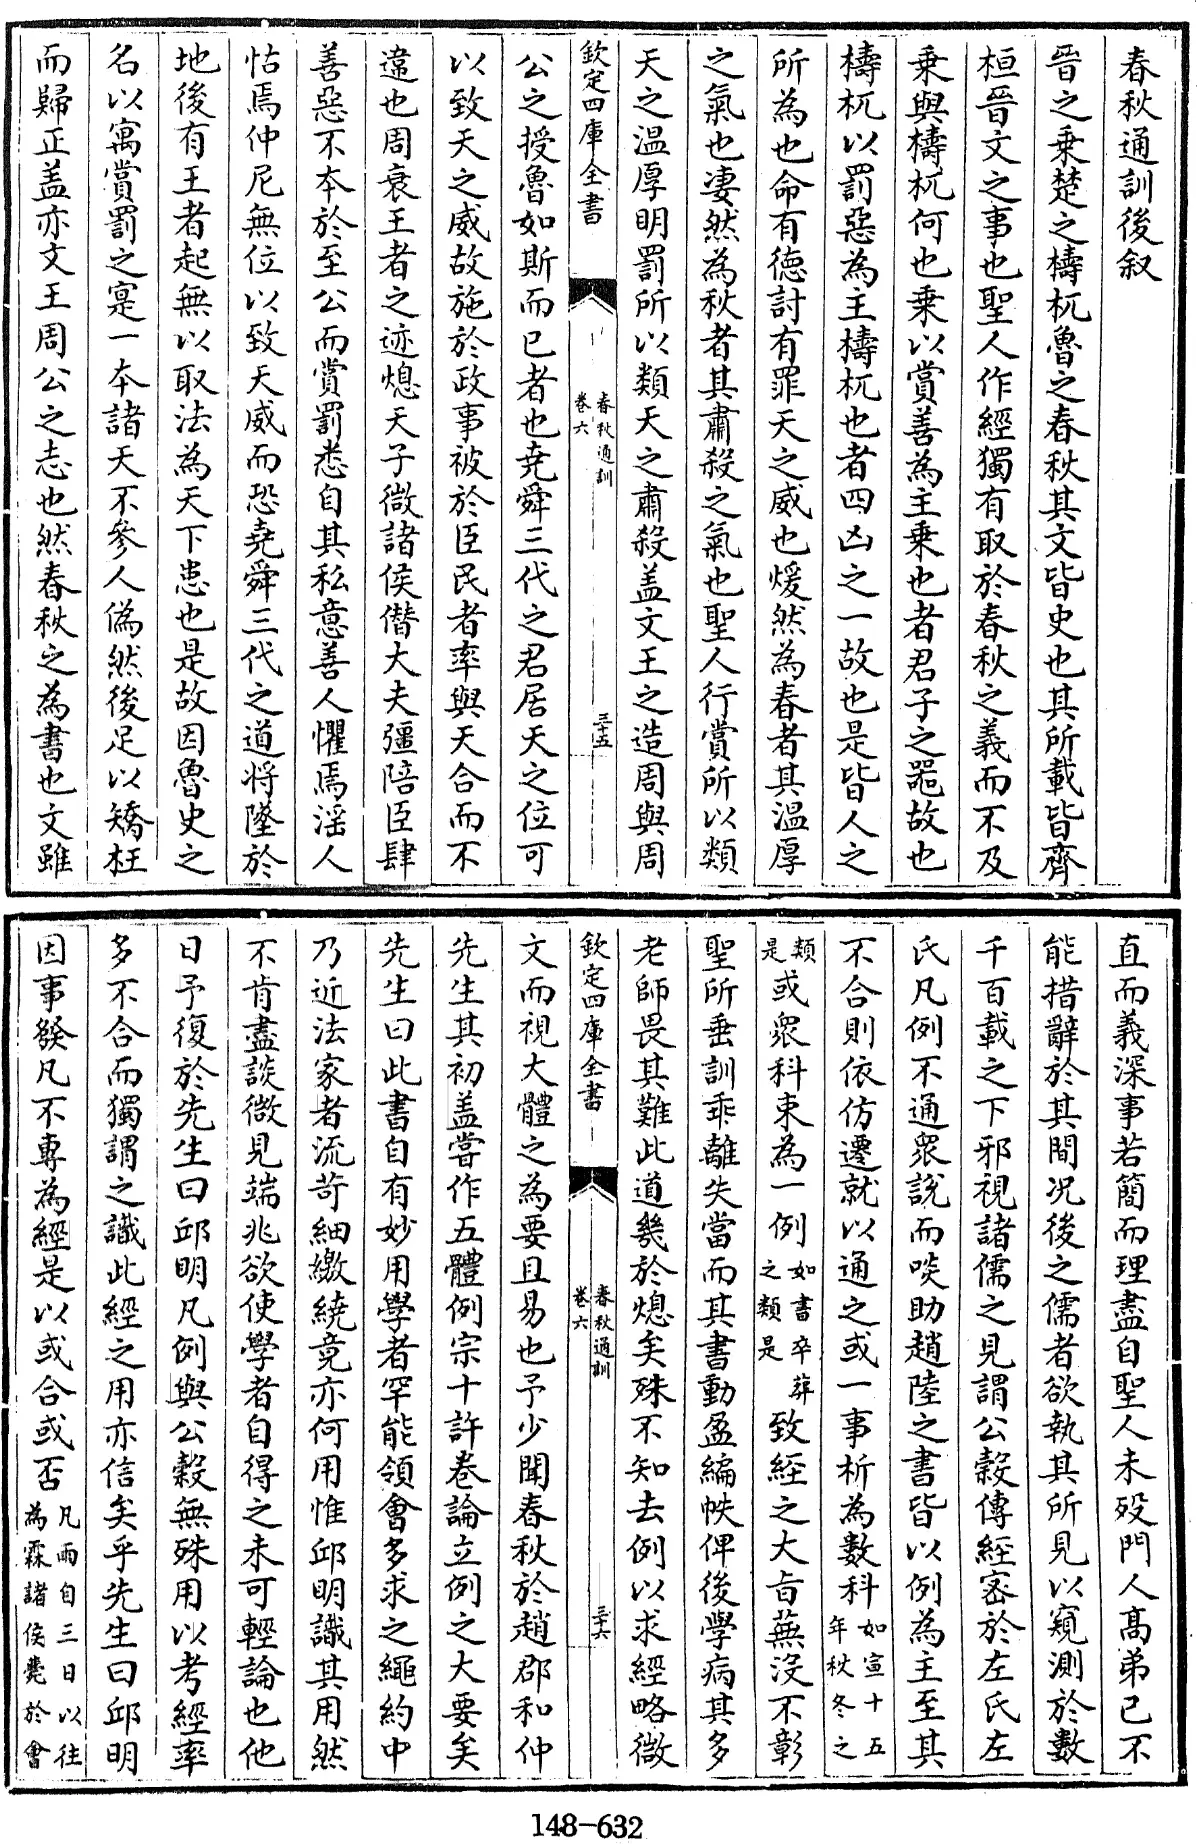 春秋通訓後叙
晉之乗楚之檮杌魯之春秋其文皆史也其所載皆齊
桓晉文之事也聖人作經獨有取於春秋之義而不及
乗與檮杌何也乗以賞善為主乗也者君子之器故也
檮杌以罰惡為主檮杌也者四凶之一故也是皆人之
所為也命有徳討有罪天之威也煖然為春者其温厚
之氣也凄然為秋者其肅殺之氣也聖人行賞所以類
天之温厚明罰所以類天之肅殺盖文王之造周與周
欽定四庫全書
春秋通訓
卷六
三十五
公之授魯如斯而已者也堯舜三代之君居天之位可
以致天之威故施於政事被於臣民者率與天合而不
違也周衰王者之迹熄天子微諸侯僭大夫彊陪臣肆
善惡不本於至公而賞罰悉自其私意善人懼焉淫人
怙焉仲尼無位以致天威而恐堯舜三代之道将墜於
地後有王者起無以取法為天下患也是故因魯史之
名以寓賞罰之寔一本諸天不參人偽然後足以矯枉
而歸正盖亦文王周公之志也然春秋之為書也文雖
直而義深事若簡而理盡自聖人未殁門人髙弟已不
能措辭於其間况後之儒者欲執其所見以窺測於數
千百載之下邪視諸儒之見謂公榖傳經宻於左氏左
氏凡例不通衆説而啖助趙陸之書皆以例為主至其
不合則依仿遷就以通之或一事析為數科如宣十五年秋冬之
類是或衆科束為一例如書卒葬之類是致經之大㫖蕪没不彰
聖所垂訓乖離失當而其書動盈編帙俾後學病其多
老師畏其難此道幾於熄矣殊不知去例以求經略微
欽定四庫全書
春秋通訓
卷六
三十六
文而視大體之為要且易也予少聞春秋於趙郡和仲
先生其初盖嘗作五體例宗十許卷論立例之大要矣
先生曰此書自有妙用學者罕能領會多求之繩約中
乃近法家者流苛細繳繞竟亦何用惟邱明識其用然
不肯盡談微見端兆欲使學者自得之未可輕論也他
日予復於先生曰邱明凡例與公榖無殊用以考經率
多不合而獨謂之識此經之用亦信矣乎先生曰邱明
因事發凡不專為經是以或合或否凡雨自三日以往為霖諸侯薨於會
148-632